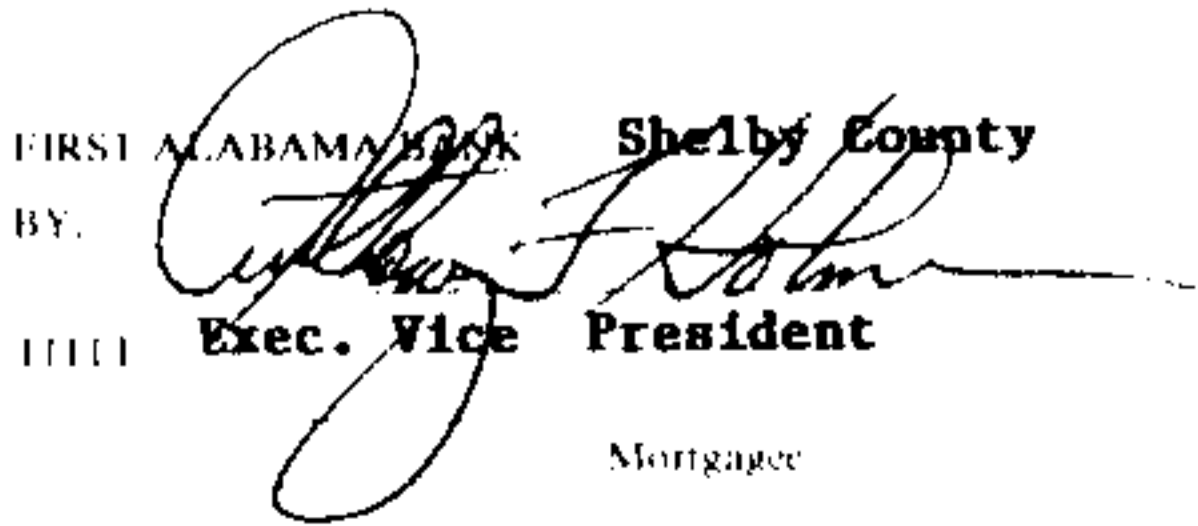 FIRST ALABAMA BANK Shelby County
BY.
TITLE Exec. Vice President
Mortgagee